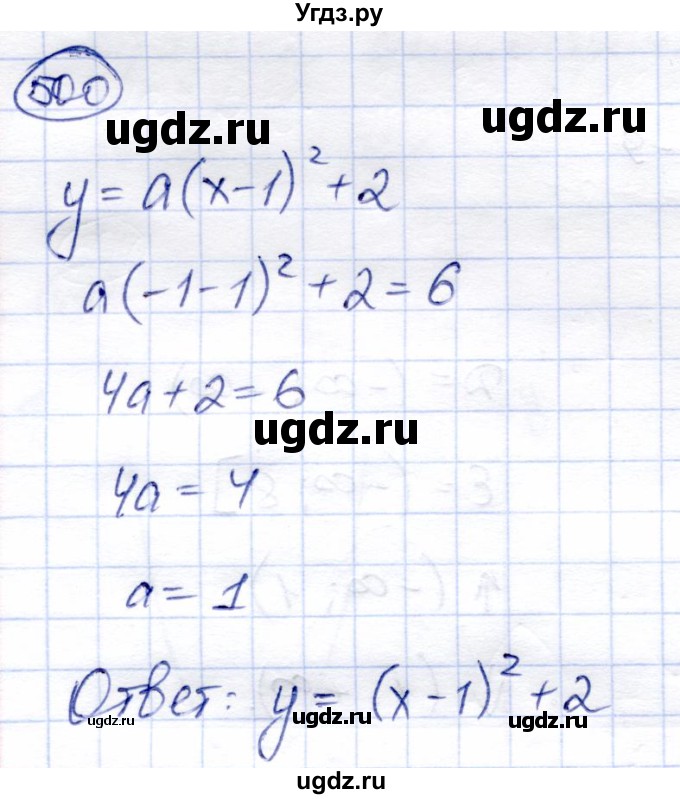 Угдз.ру
500
ugdz.ru ugdz.ru
y = a(x-1)² + 2
a(-1-1)² + 2 = 6
4a + 2 = 6
ugdz.ru
4a = 4
a = 1
Ответ: y = (x-1)² + 2
ugdz.ru ugdz.ru ugdz.ru
ugdz.ru